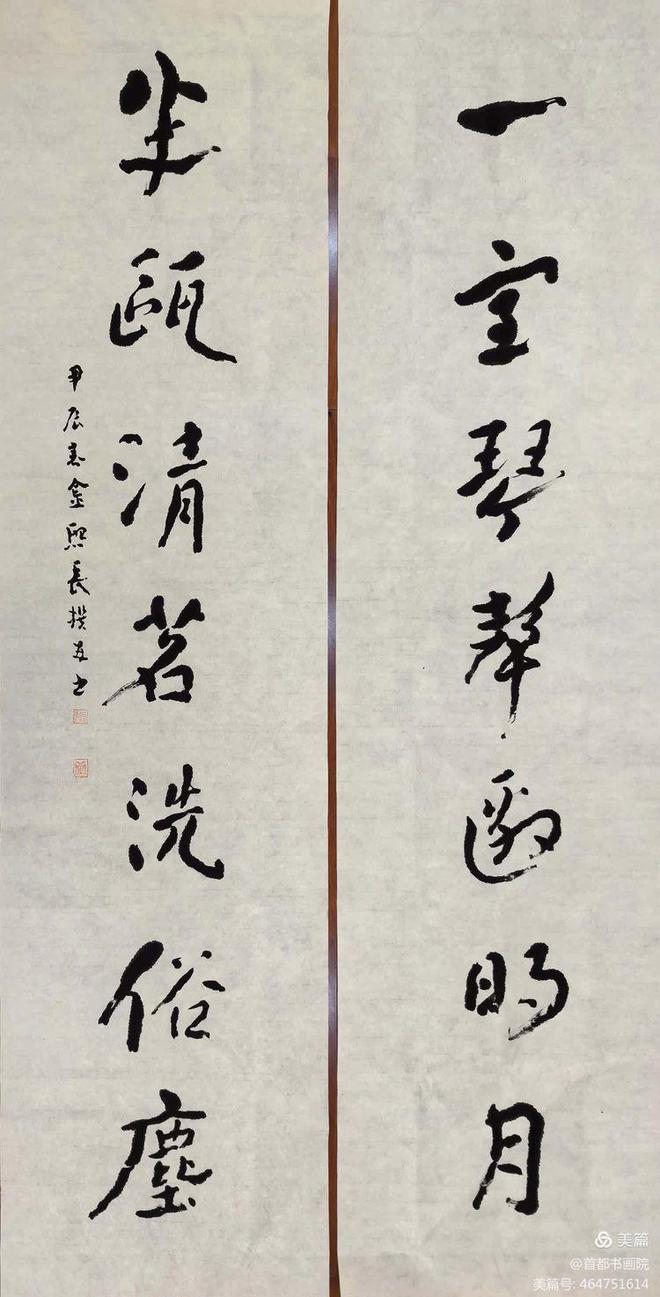 一室琴聲邀明月
半甌清茗洗俗塵
甲辰春金熙長撰并书
美篇
@首都书画院
美篇号: 464751614